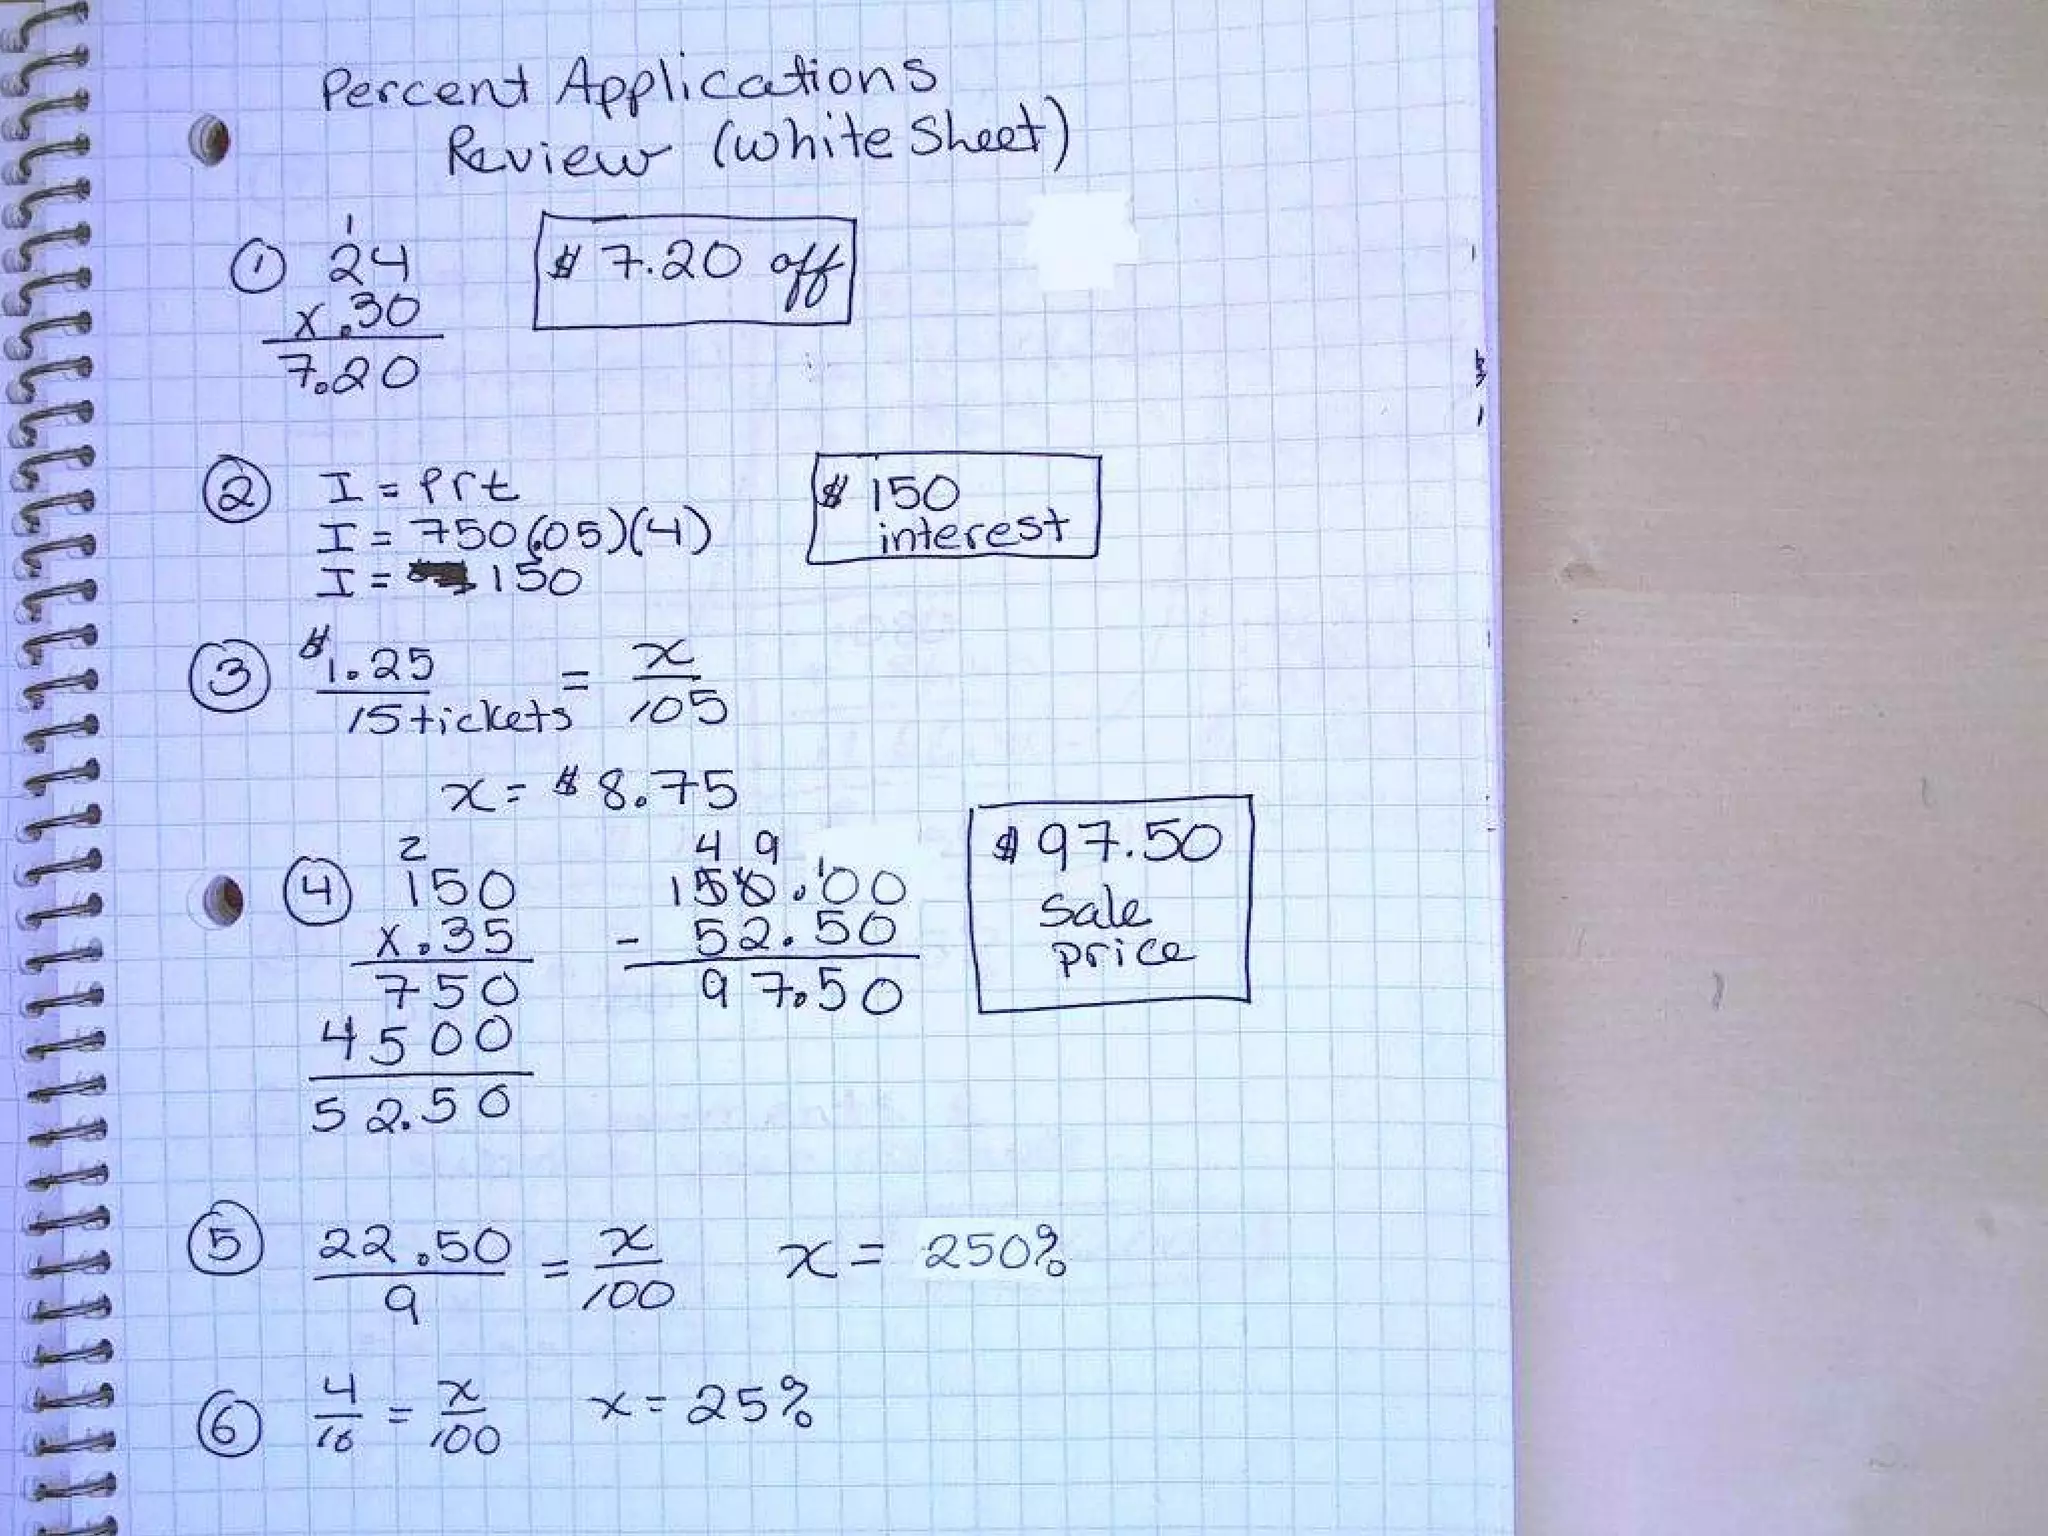 Percent Applications
Review (White Sheet)
① 1
24
x.30
7.20
$7.20 off
② I = Prt
I = 750(.05)(4)
I = 150
$150
interest
③ $1.25 = x
15 tickets 105
x = $8.75
④ 2
150
x.35
750
4500
52.50
4 9 1
150.00
- 52.50
97.50
$97.50
Sale
price
⑤ 22.50 = x x = 250%
9 100
⑥ 4 = x x = 25%
16 100